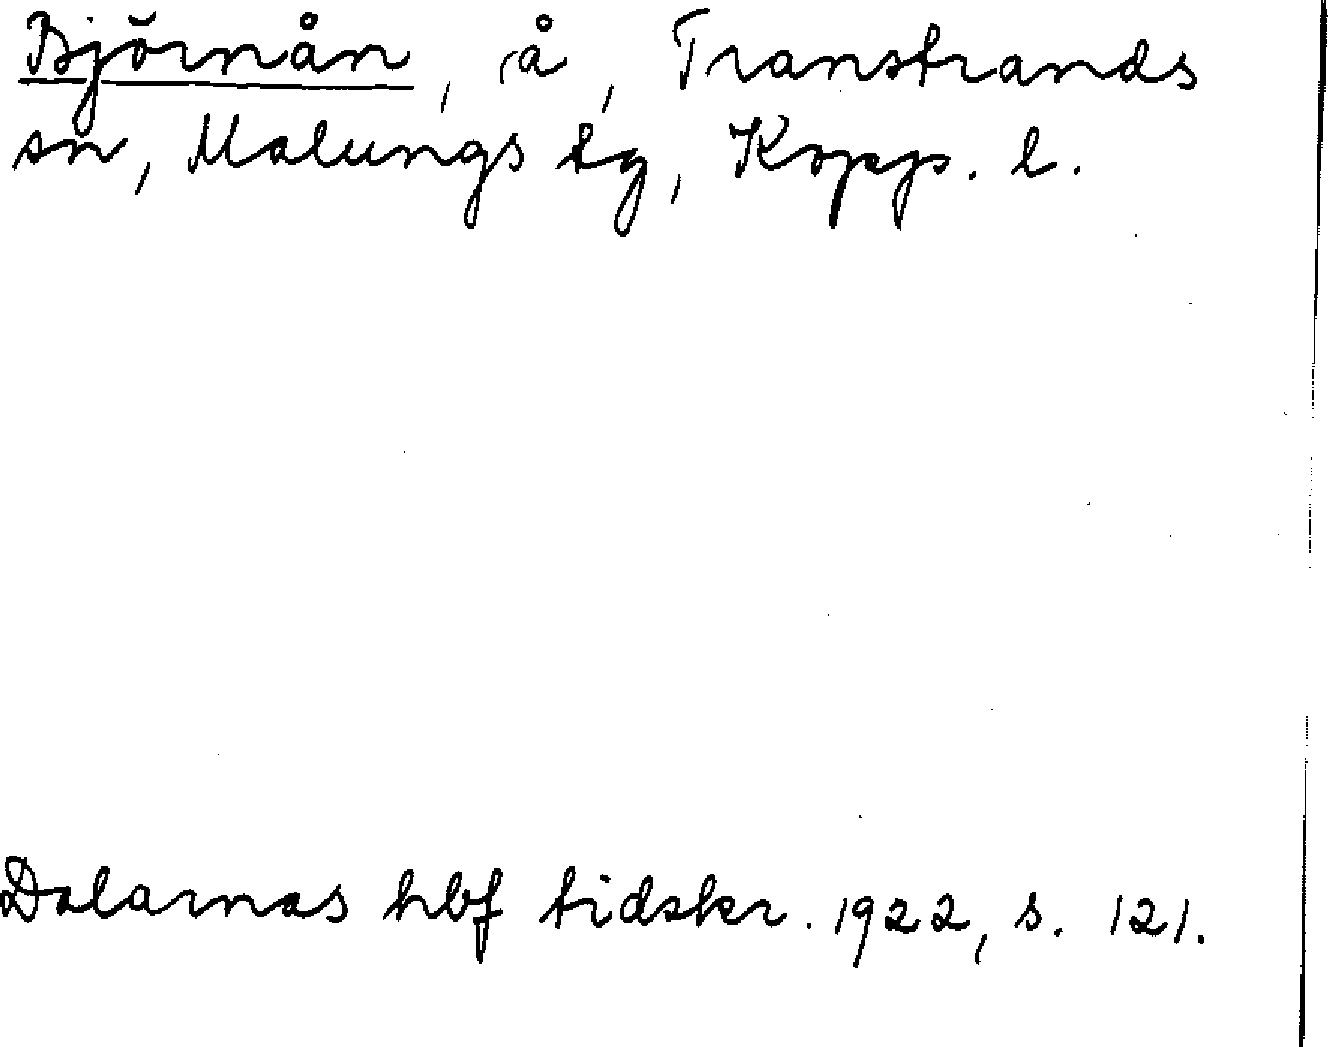 Björnån, å, Transtrands
sn, Malungs tg, Kopp. l.
Dalarnas hbf tidskr. 1922, s. 121.